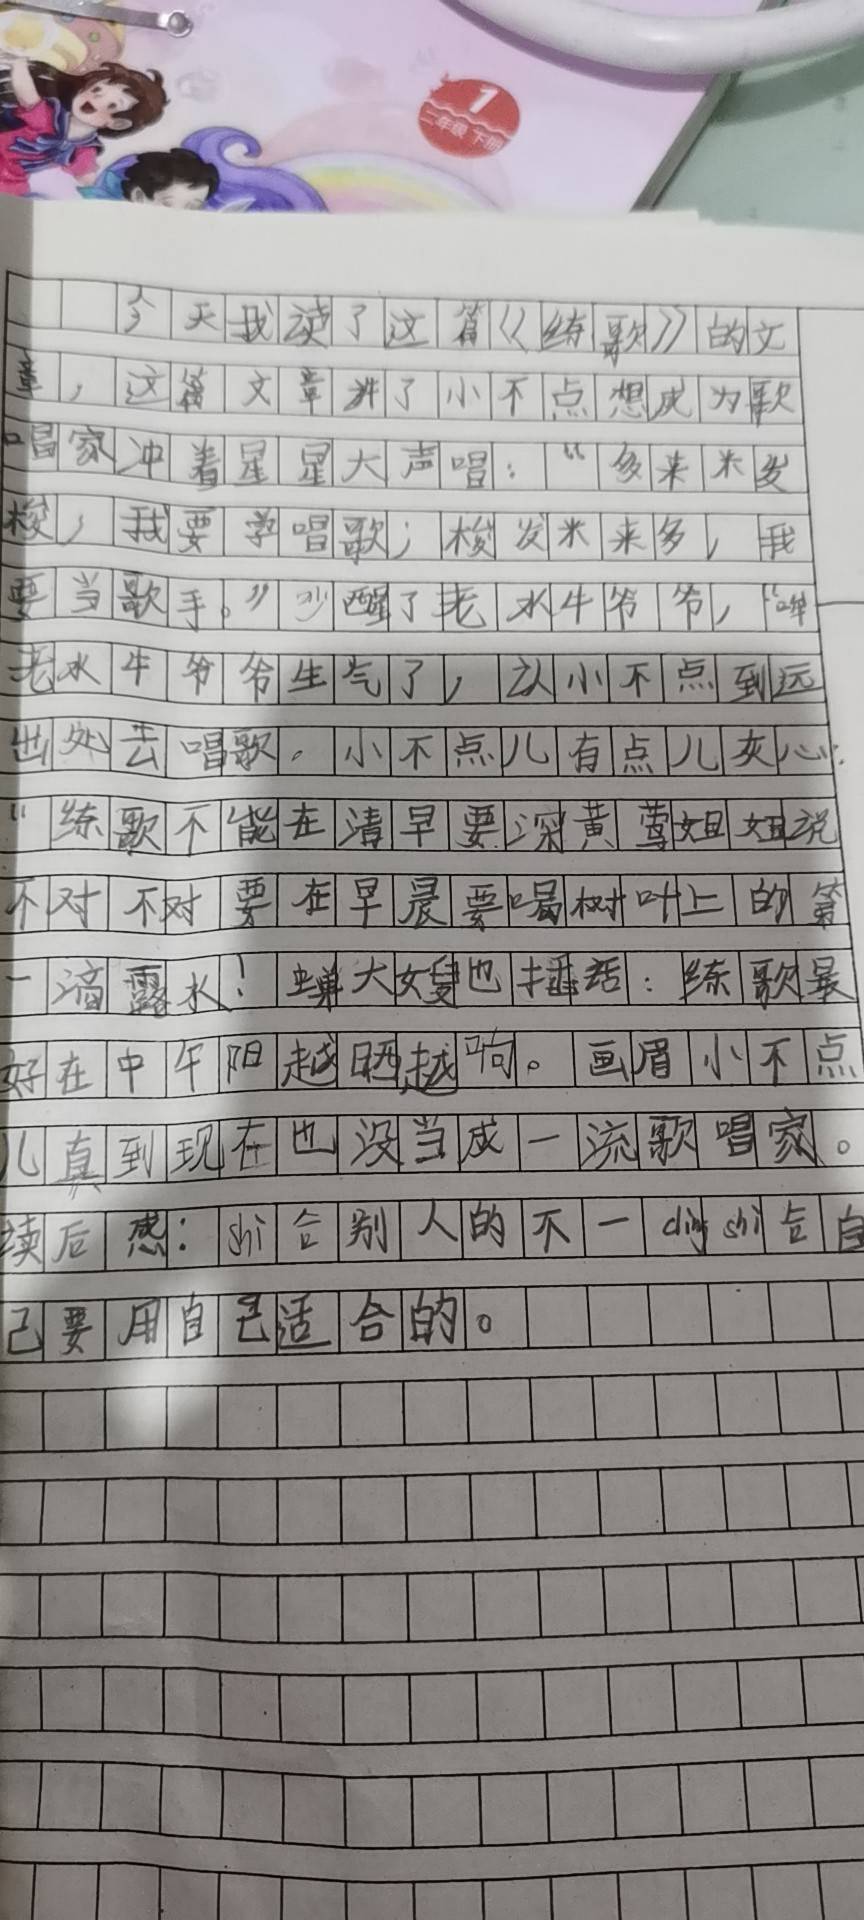 1
二年级 下册
今天我读了这篇《练歌》的文
章，这篇文章讲了小不点想成为歌
唱家冲着星星大声唱：“多来米发
梭，我要学唱歌；梭发米来多，我
要当歌手。”吵醒了老水牛爷爷，“哞
老水牛爷爷生气了，让小不点到远
出处去唱歌。小不点儿有点儿灰心.
“练歌不能在清早要深黄莺姐姐说
不对不对要在早晨要喝树叶上的第
一滴露水！蝉大嫂也插话：练歌最
好在中午阳越晒越响。画眉小不点
儿真到现在也没当成一流歌唱家。
读后感：shi合别人的不一ding shi合自
己要用自己适合的。